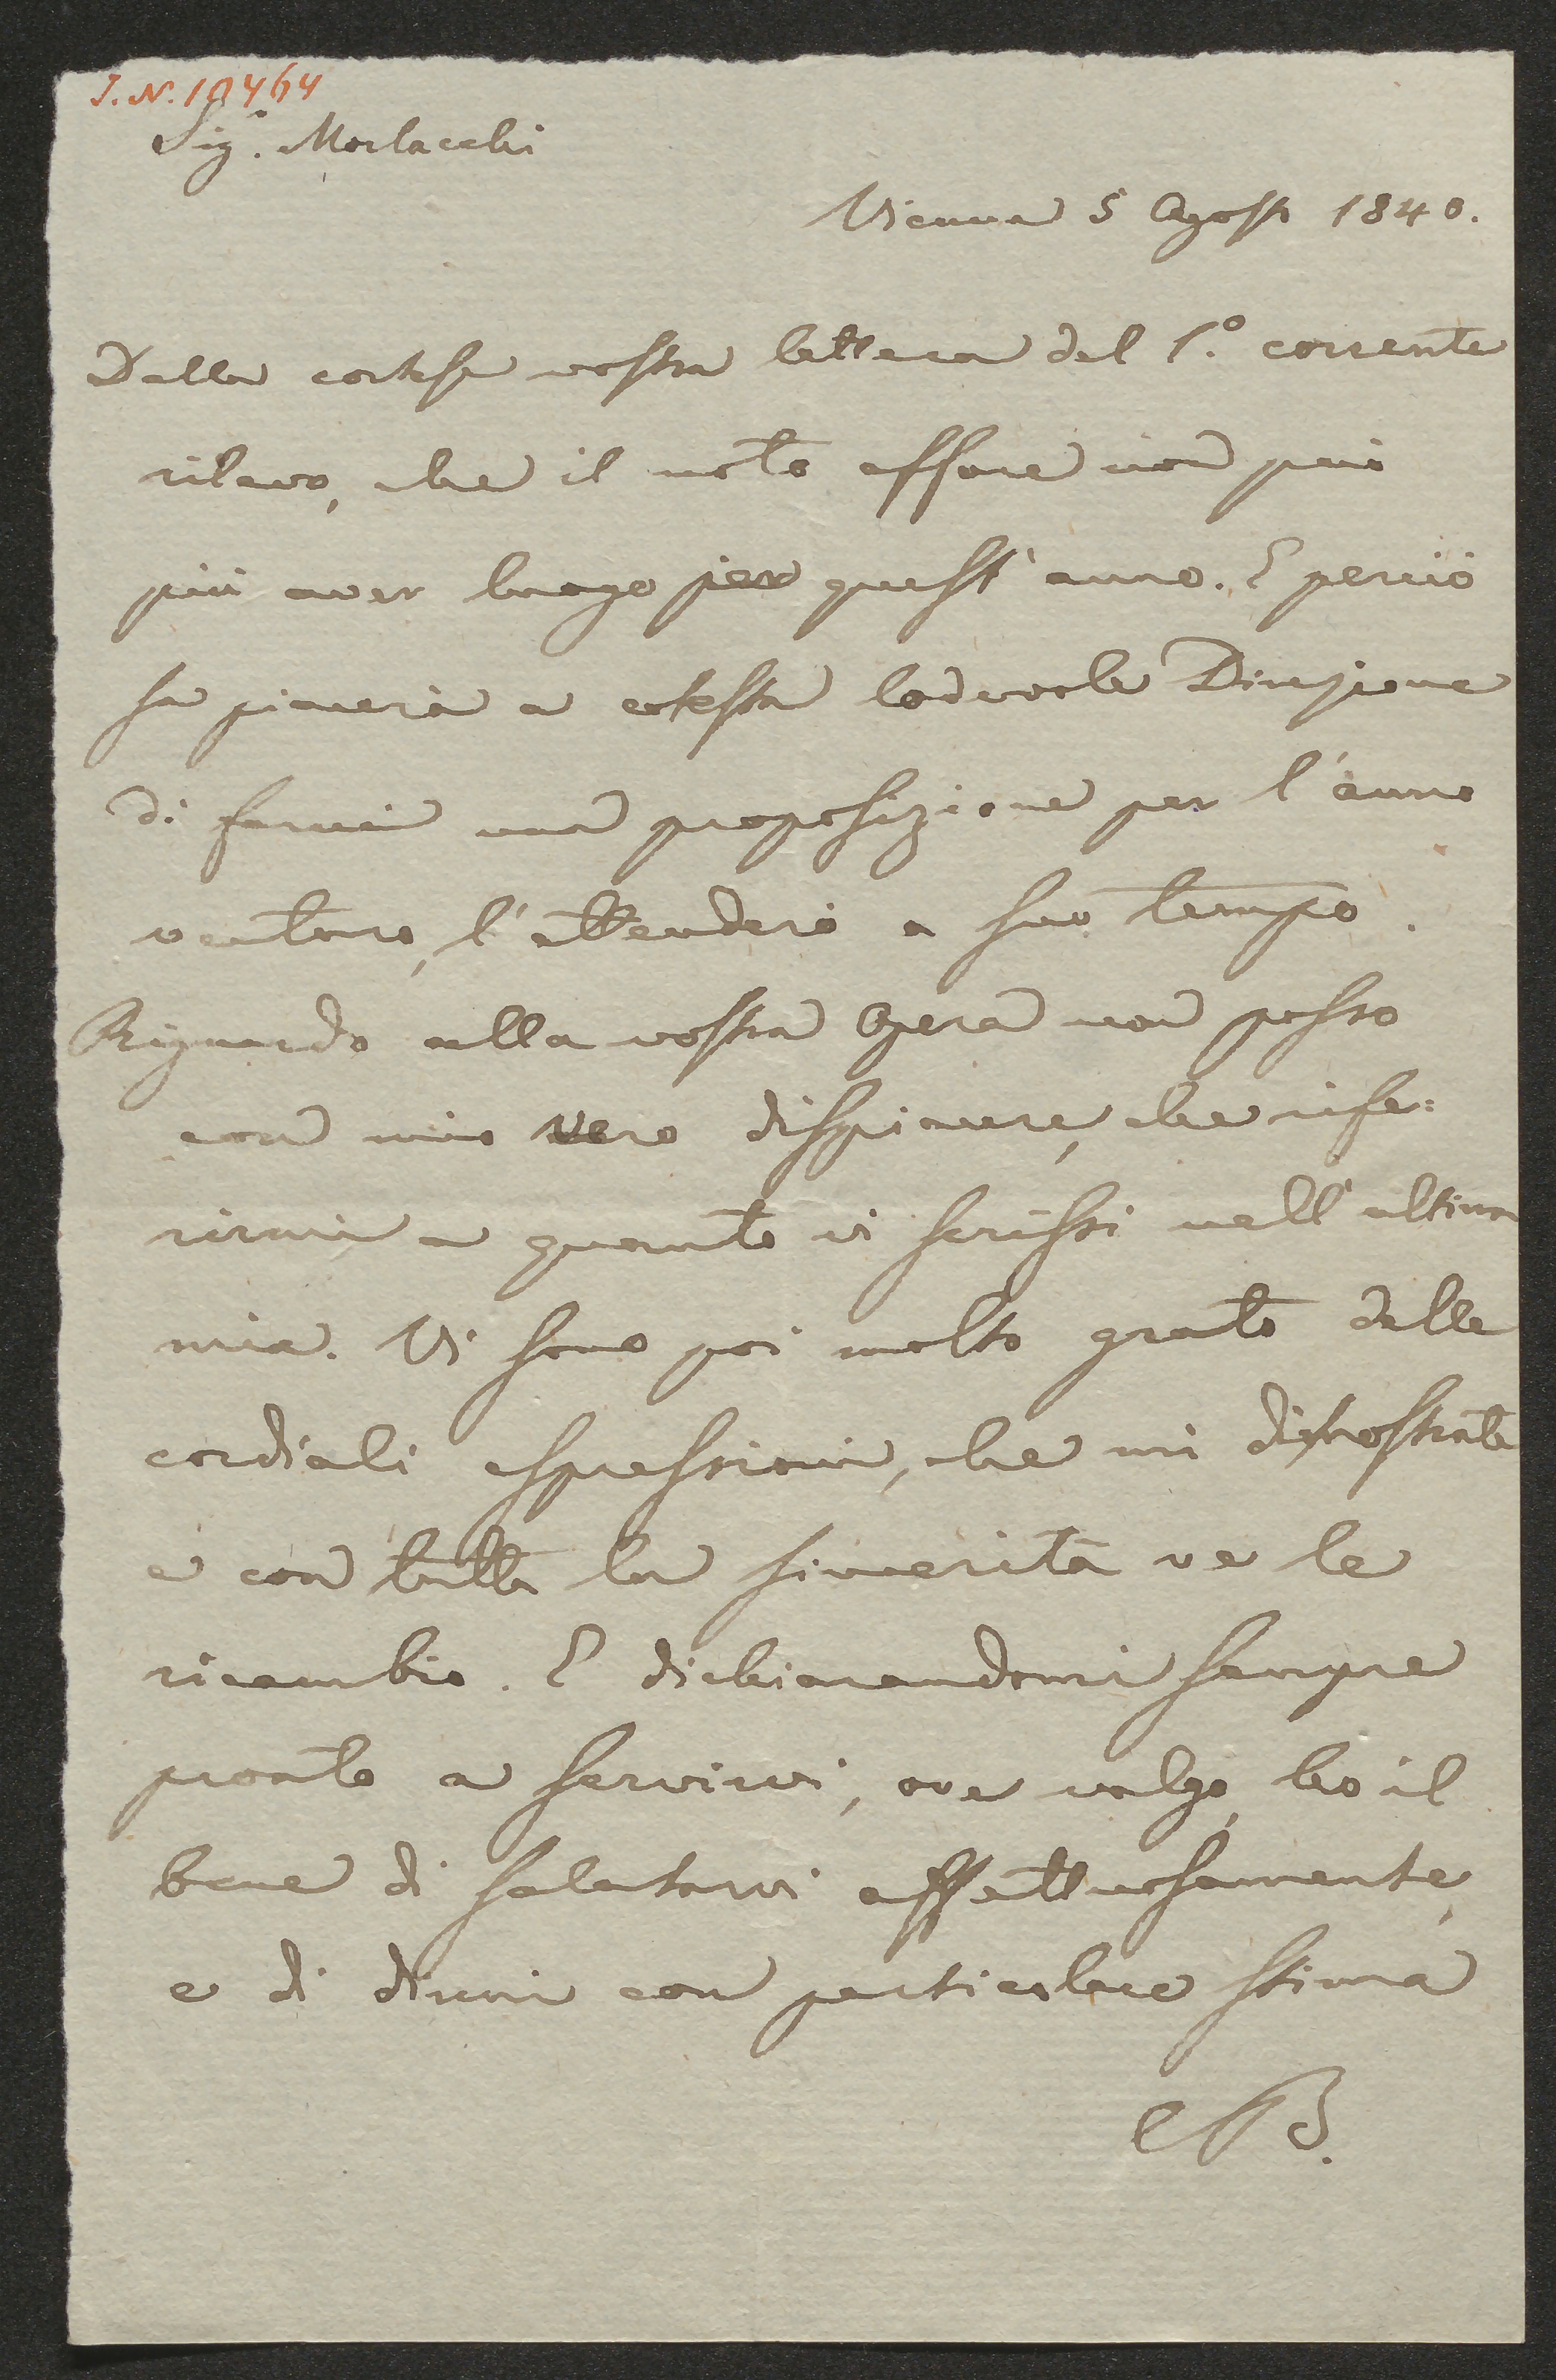 J.N. 10464
Sigr. Morlacchi
Vienna 5 Agosto 1840.
Dalla cortese vostra lettera del 1.° corrente
rilevo, che il noto affare non può
più aver luogo per quest'anno. E perciò
se piacerà a cotesta lodevole Direzione
di farmi una proposizione per l'anno
venturo, l'attenderò a suo tempo.
Riguardo alla vostra Opera non posso
con mio vero dispiacere, che rife:
rirmi a quanto vi scrissi nell'ultima
mia. Vi sono poi molto grato delle
cordiali espressioni, che mi dimostrate
e con tutta la sincerità ve le
ricambio. E dichiarandomi sempre
pronto a servirvi, ove valgo, ho il
bene di salutarvi affettuosamente,
e di dirmi con particolare stima